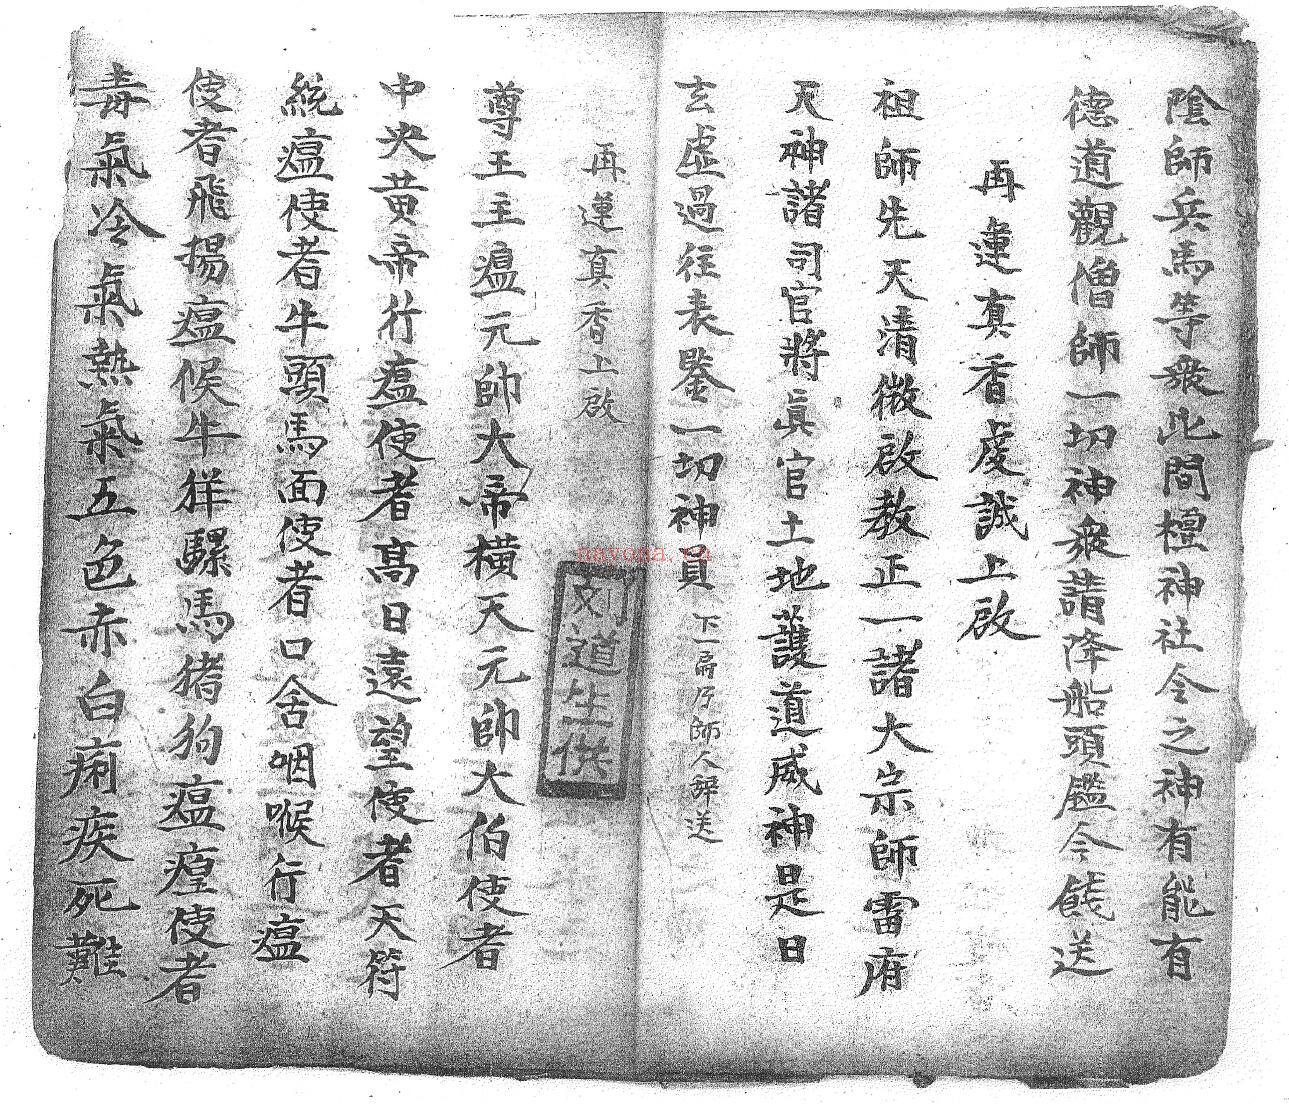 陰師兵馬等衆此間檀神社令之神有能有
德道觀僧師一切神衆請降船頭鑑今餞送
再運真香虔誠上啟
祖師先天清微啟教正一諸大宗師雷府
天神諸司官將真官土地護道威神是日
玄虛過往表鑒一切神員 下一扁乃師人辞送
再運真香上啟
刘道生供
尊王主瘟元帥大帝橫天元帥大伯使者
中央黄帝行瘟使者髙日遠望使者天符
統瘟使者牛頭馬面使者口舍咽喉行瘟
使者飛揚瘟候牛羊騾馬猪狗瘟瘟使者
毒氣冷氣熱氣五色赤白痢疾死難
nayona.cn